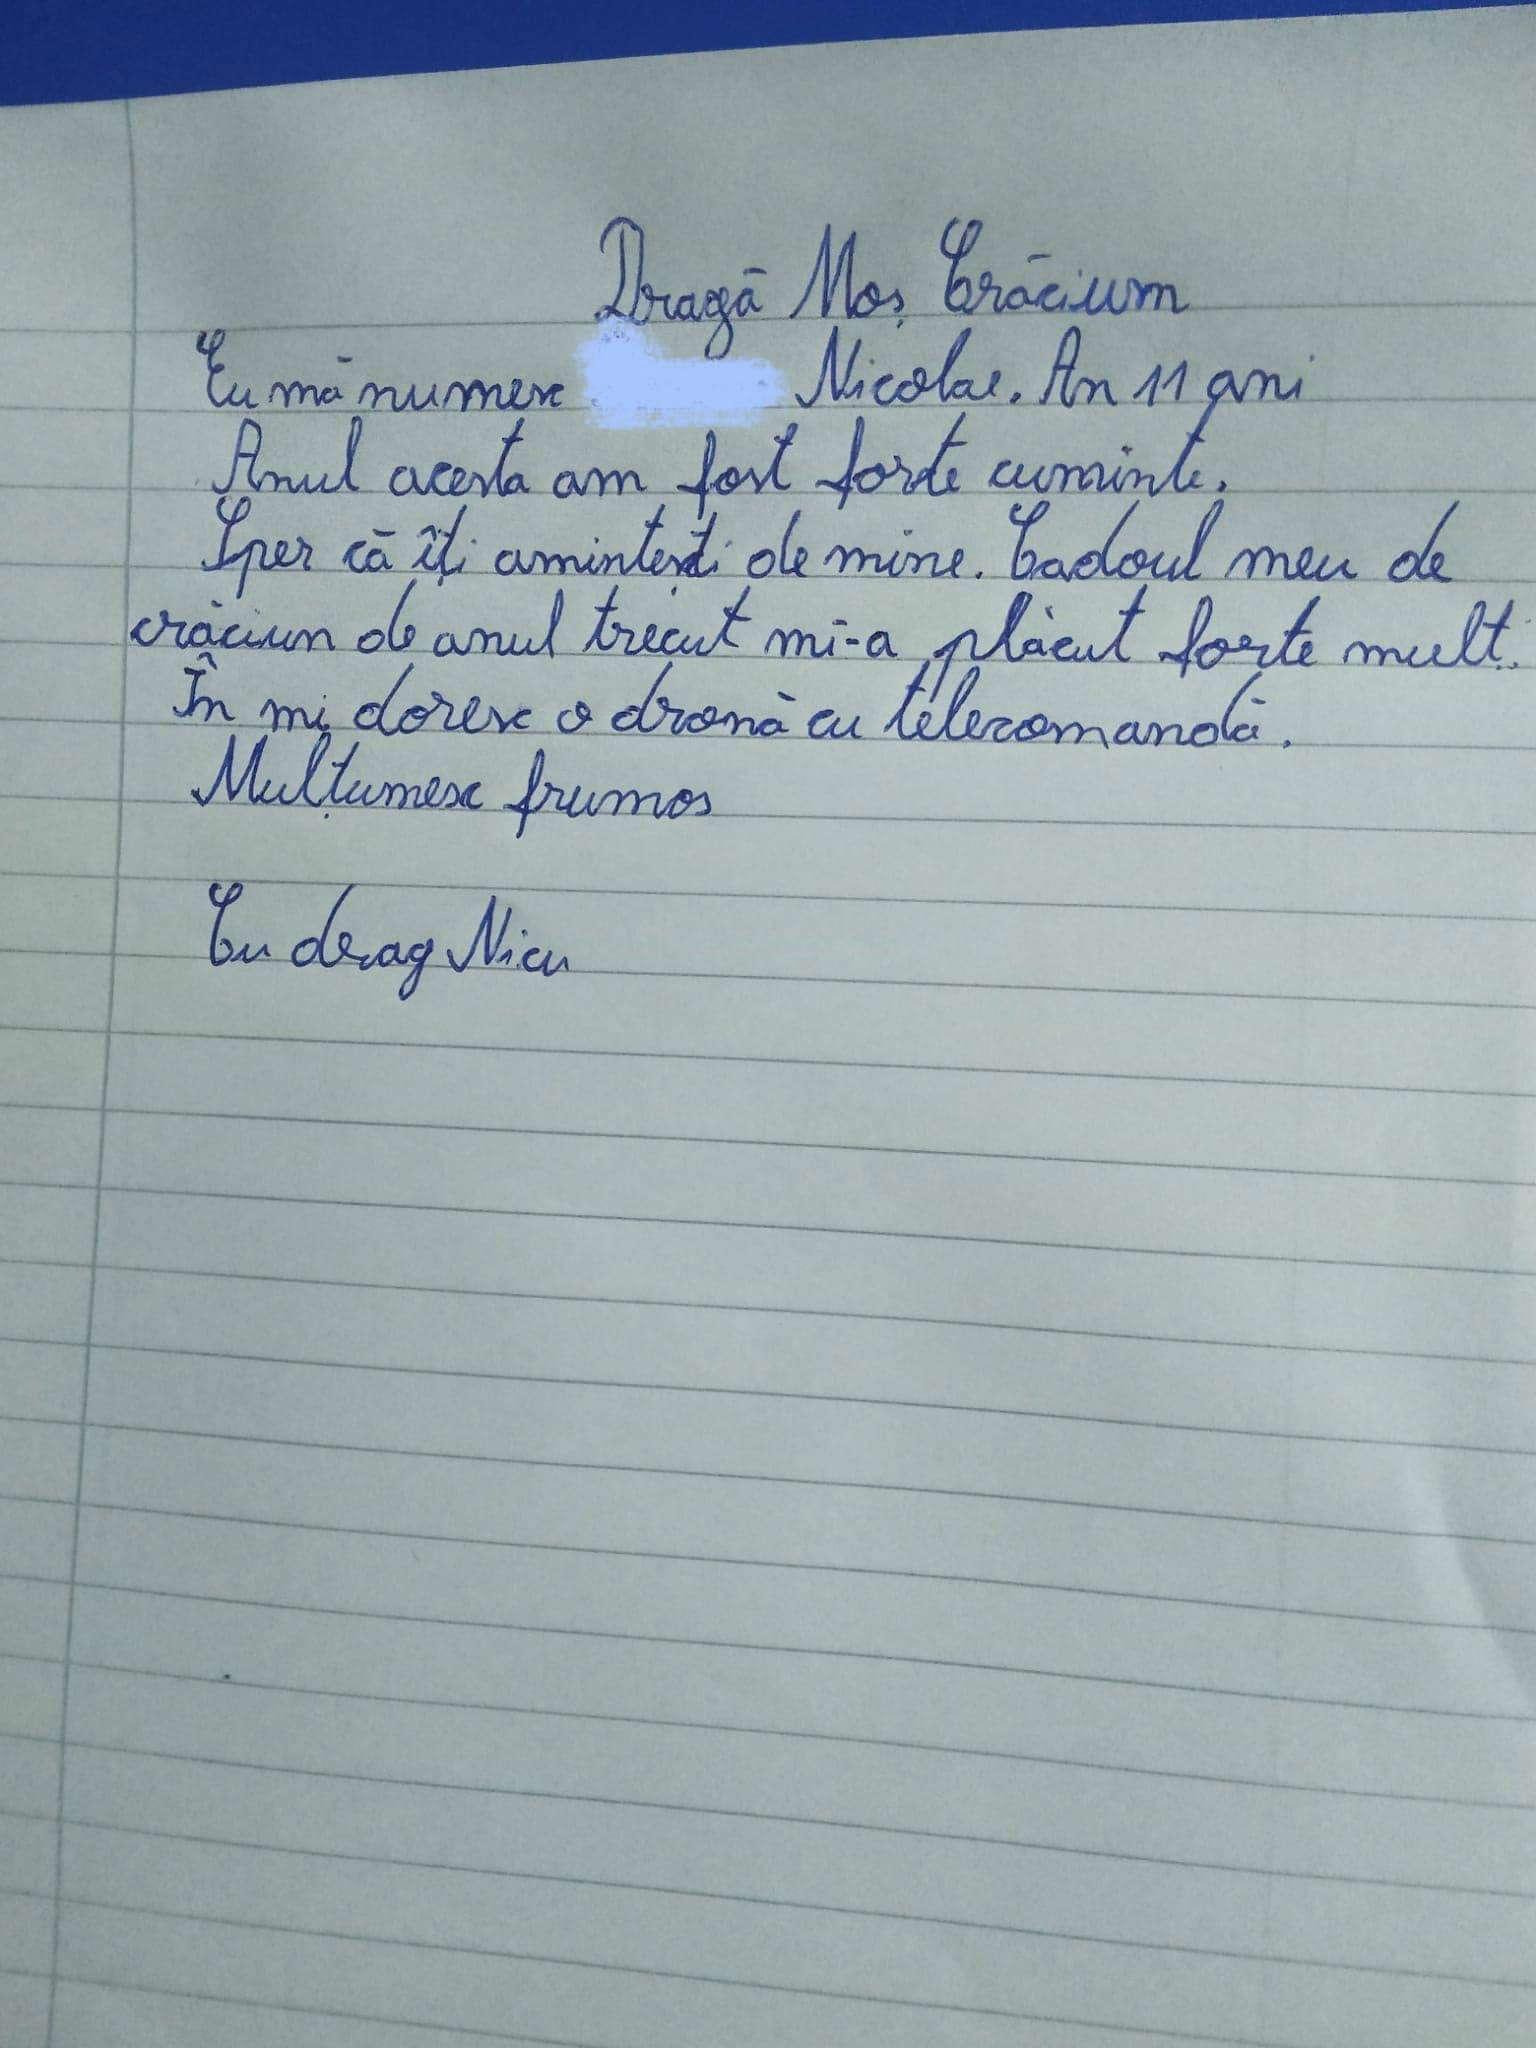 Dragă Moș Crăciun
Eu mă numesc Nicolae. An 11 ani
Anul acesta am fost forte cuminte.
Sper că îți amintești de mine. Cadoul meu de
crăciun de anul trecut mi-a plăcut forte mult.
În mi doresc o dronă cu telecomandă.
Mulțumesc frumos
Cu drag Nicu